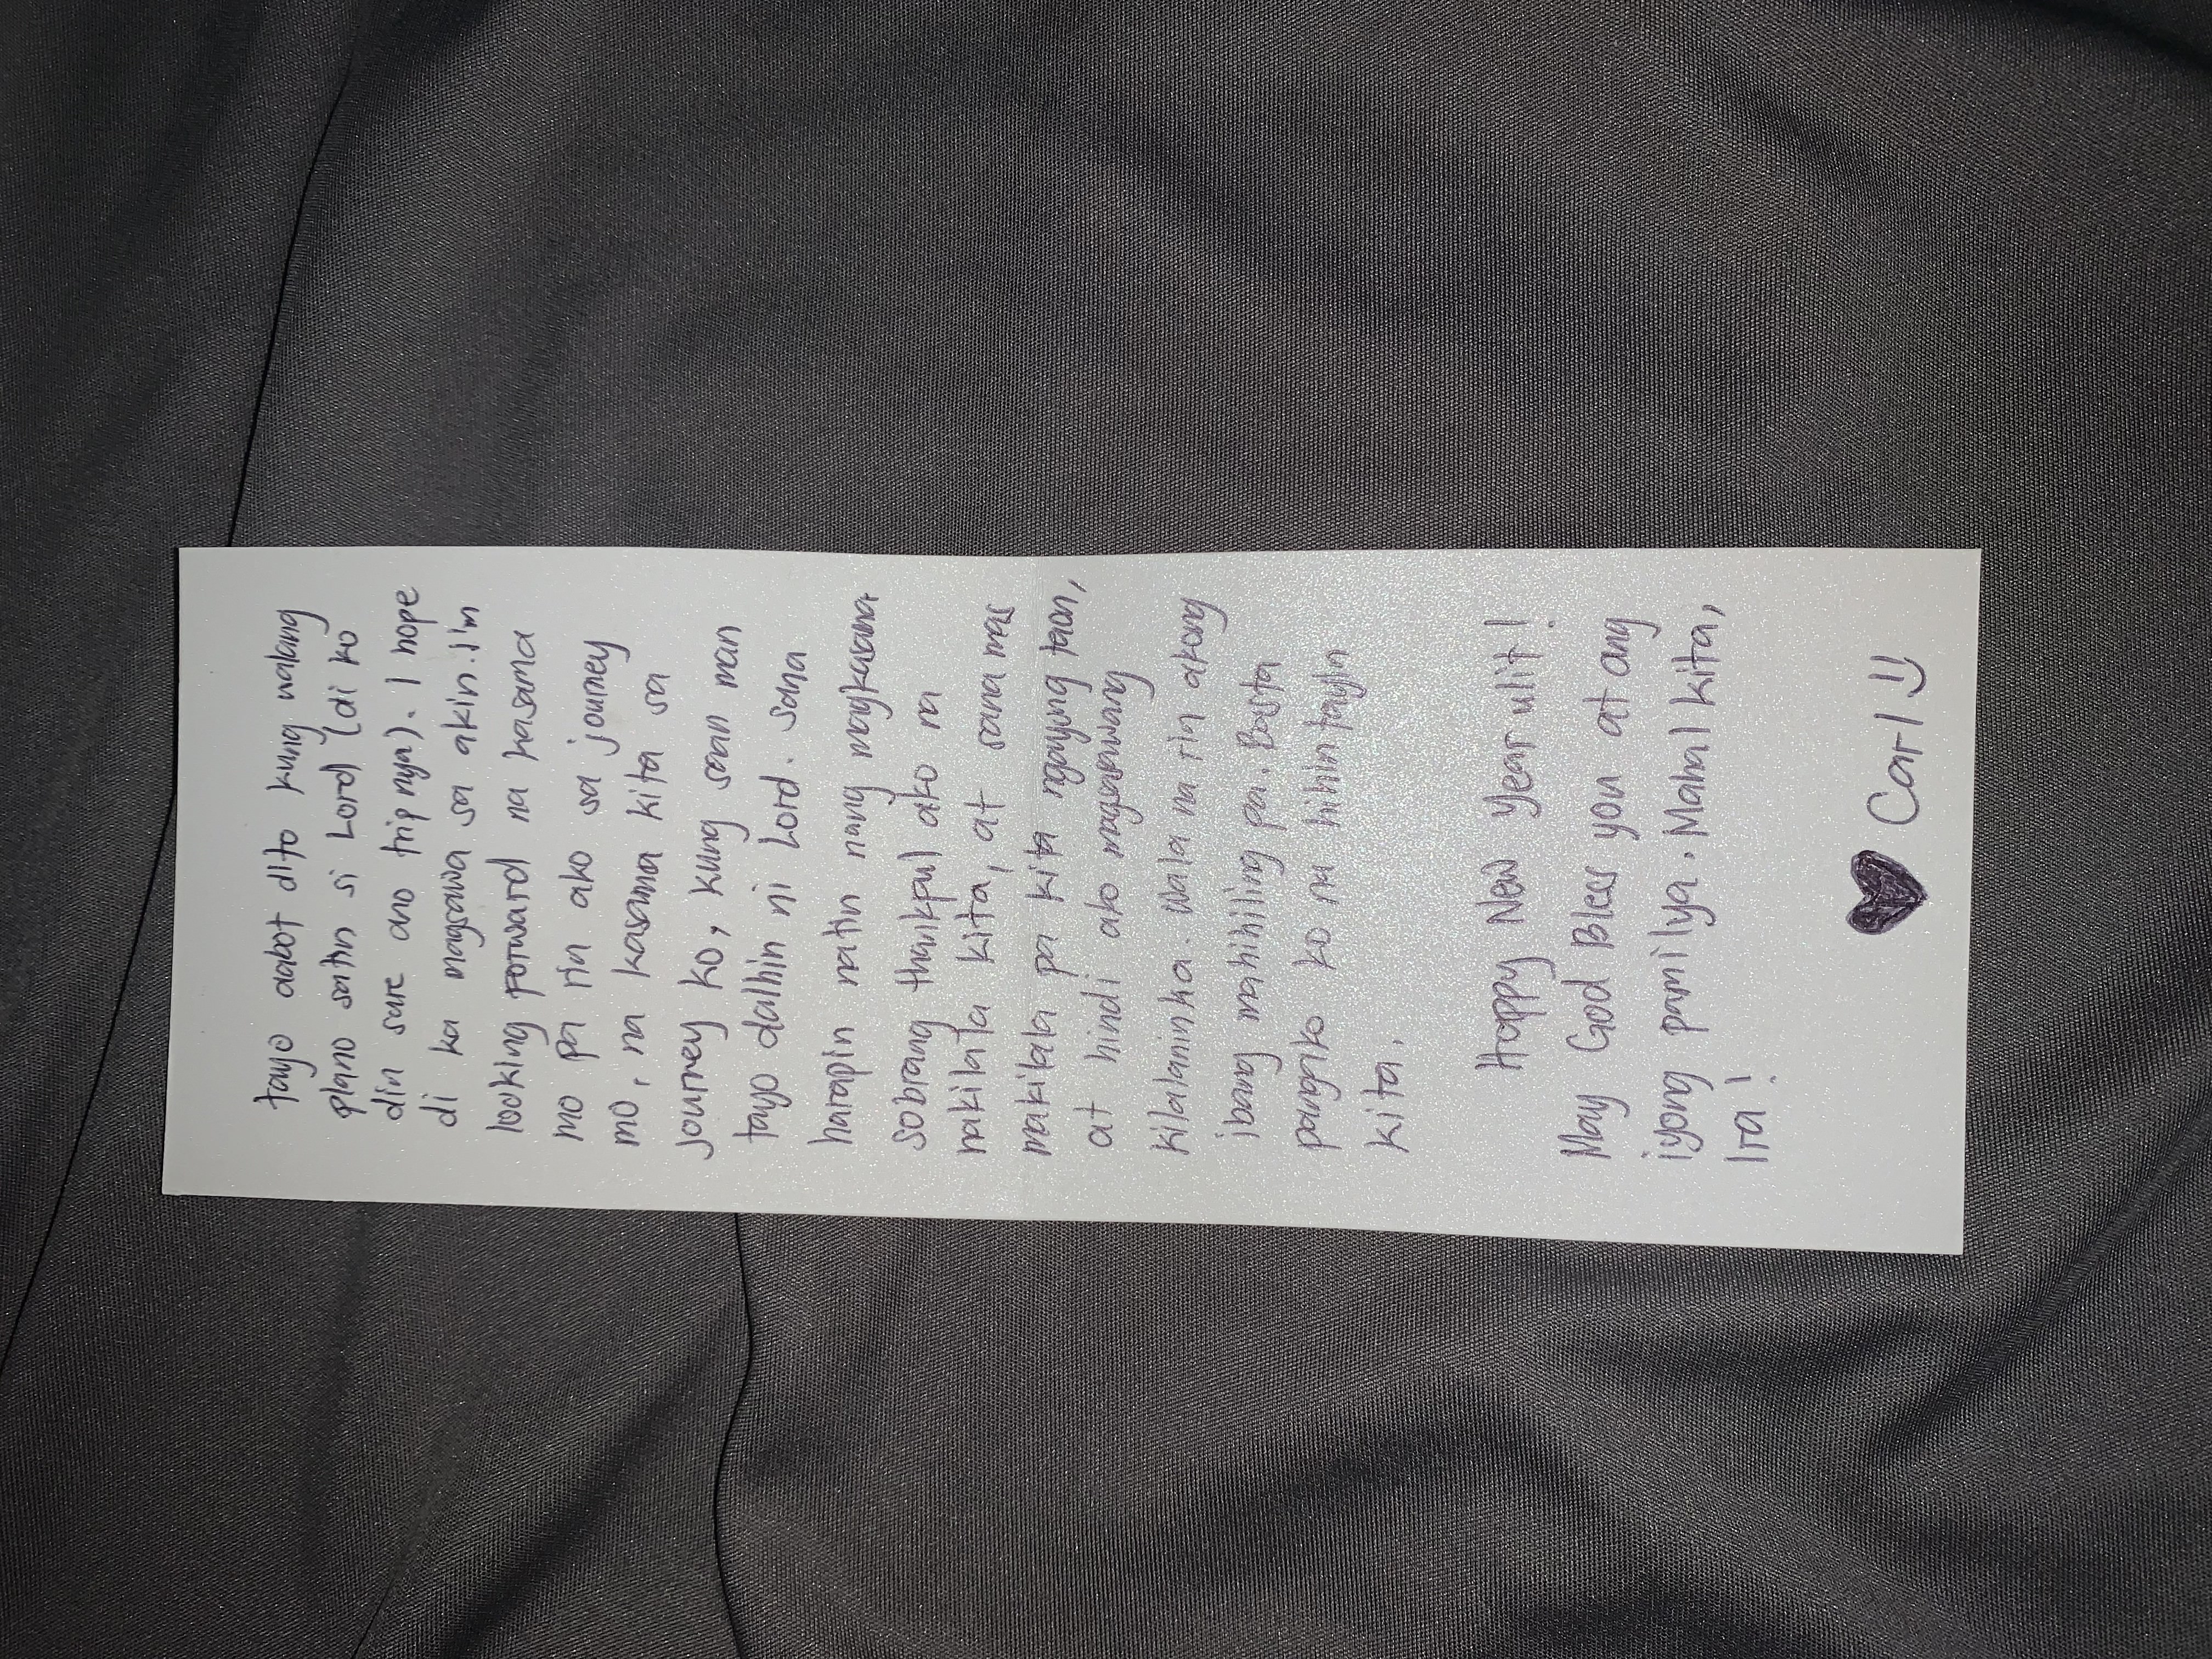 tayo aabot dito kung walang
plano satin si Lord (di ko
din sure ano trip nya). I hope
di ka magsawa sa akin. I'm
looking forward na kasama
mo pa rin ako sa journey
mo, na kasama kita sa
journey ko, kung saan man
tayo dalhin ni Lord. Sana
harapin natin nang magkasama.
Sobrang thankful ako na
nakilala kita, at sana mas
makilala pa kita ngayung taon,
at hindi ako magsawang
kilalanin ka. Wala na rin akong
ibang mahihiling pa. Basta
pangako ko na hihintayin
kita.
Happy New Year ulit!
May God Bless you at ang
iyong pamilya. Mahal kita,
Ira!
♥ Carl :)